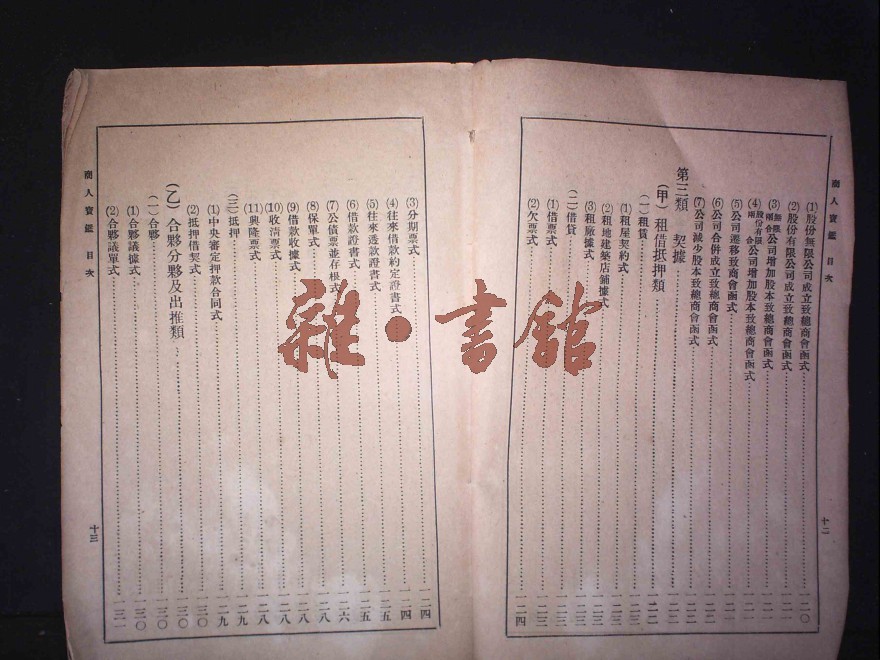 商人寶鑑 目次
十二
(1)股份無限公司成立致總商會函式……一二〇
(2)股份有限公司成立致總商會函式……一二一
(3)無限兩合公司增加股本致總商會函式……一二一
(4)股份有限兩合公司增加股本致總商會函式……一二一
(5)公司遷移致商會函式……一二一
(6)公司合併成立致總商會函式
(7)公司減少股本致總商會函式
第三類 契據
(甲)租借抵押類
(一)租賃
(1)租屋契約式
(2)租地建築店鋪據式
(3)租廠據式
(二)借貸
(1)借票式……一二三
(2)欠票式……一二四
(3)分期票式……一二四
(4)往來借款約定證書式……一二四
(5)往來透款證書式……一二五
(6)借款證書式……一二五
(7)公債票並存根式……一二六
(8)保單式……一二八
(9)借款收據式……一二八
(10)收清票式……一二八
(11)興隆票式……一二八
(三)抵押……一二九
(1)中央審定押款合同式……一二九
(2)抵押借契式……一三〇
(乙)合夥分夥及出推類……一三〇
(一)合夥……一三〇
(1)合夥議據式……一三〇
(2)合夥議單式……一三一
商人寶鑑 目次
十三
雜·書館